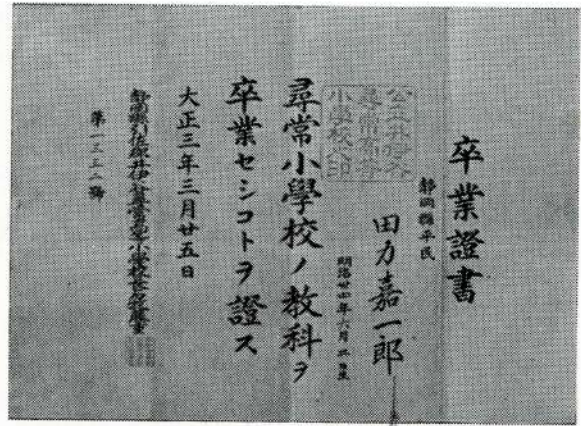 卒業證書
靜岡縣平民
田力嘉一郎
明治四年六月日生
公立井伊谷
尋常高等
小學校之印
尋常小學校ノ教科ヲ
卒業セシコトヲ證ス
大正三年三月廿五日
靜岡縣引佐郡井伊谷尋常高等小學校長
第一三三二號